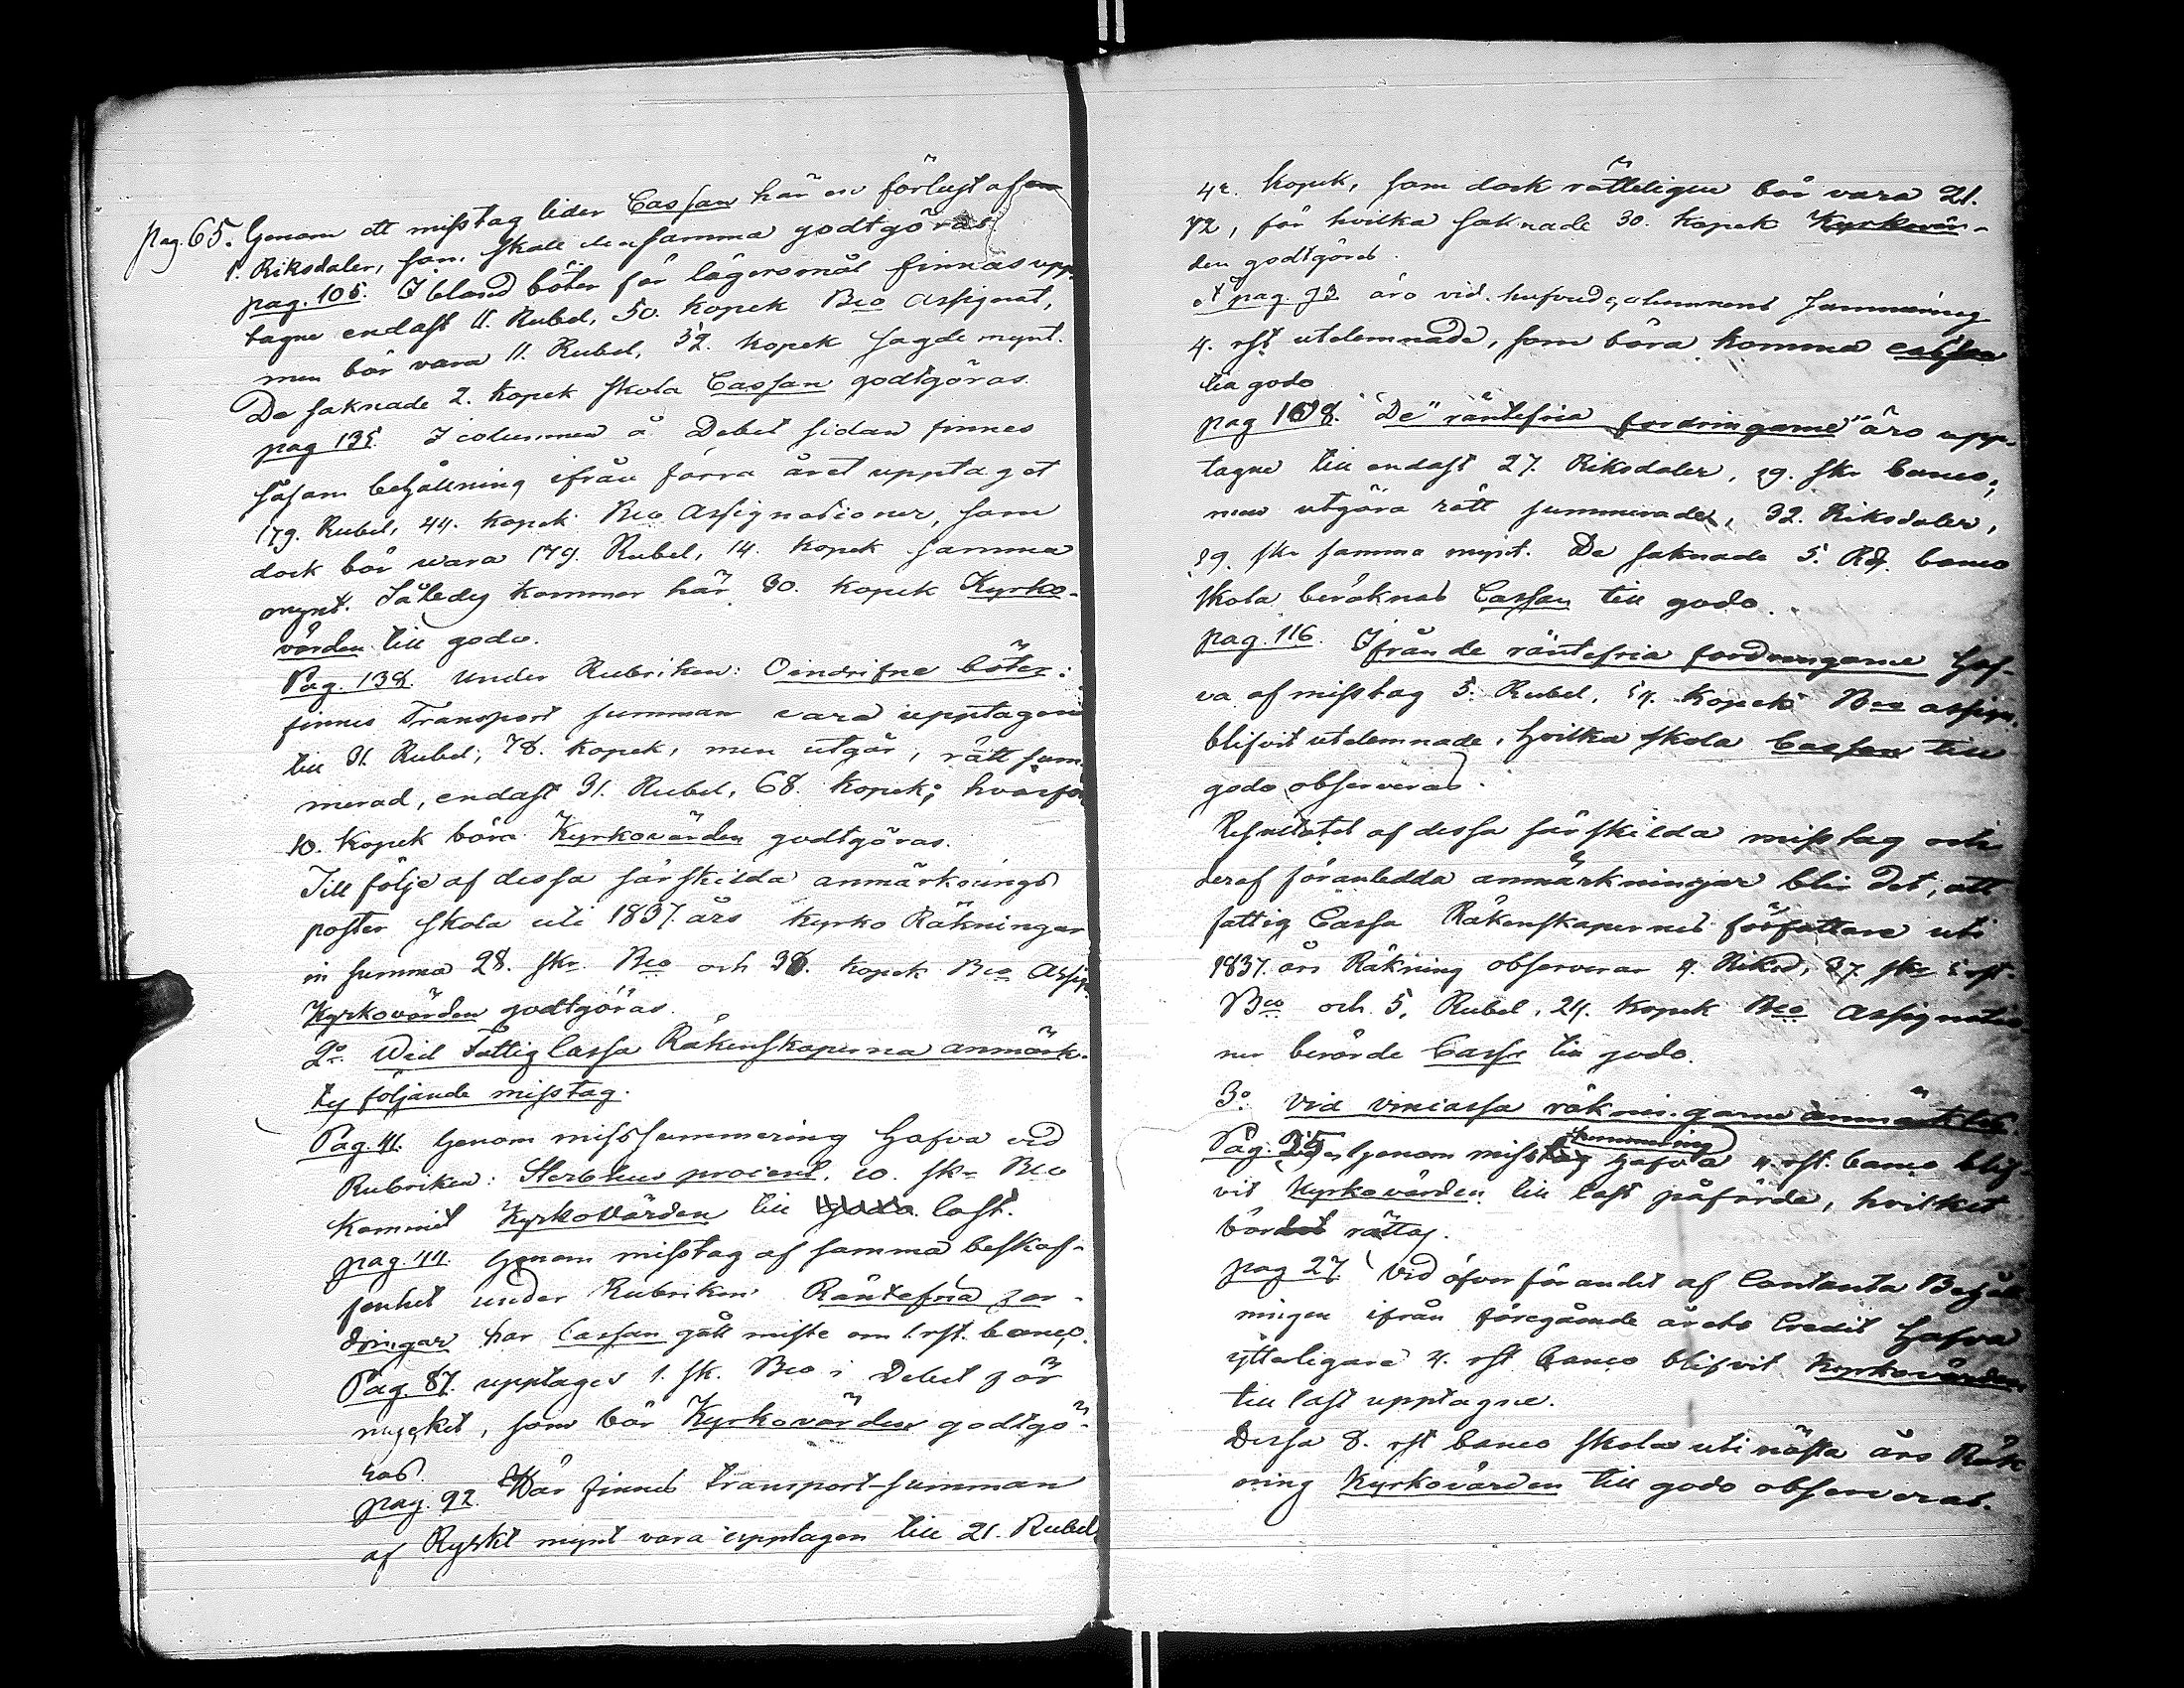 pag. 65. Genom ett misstag lider Cassan här en förlust af
1. Riksdaler, som skall densamma godtgöras
pag. 105. Ibland böter för lägersmål finnas upp-
tagne endast 11. Rubel, 50. Kopek Bco Assignat,
men bör vara 11. Rubel, 52. Kopek sagde mynt.
De saknade 2. Kopek skola Cassan godtgöras.
pag 135. I columnen å Debet sidan finnes
såsom behållning ifrån förra året upptaget
179. Rubel, 44. Kopek Bco Assignationer, som
dock bör wara 179. Rubel, 14. Kopek samma
mynt. Således kommer här 30. Kopek Kyrko-
värden till godo.
Pag. 138. Under Rubriken: Oindrifne böter:
finnes Transport summan vara upptagen
till 31. Rubel, 78. Kopek, men utgår, rätt sum-
merad, endast 31. Rubel, 68. Kopek; hvarför
10. Kopek böra Kyrkovärden godtgöras.
Till följe af dessa särskilda anmärknings
poster skola uti 1837. års Kyrko Räkningar
in summa 28. sk. Bco och 38. Kopek Bco Assign.
Kyrkovärden godtgöras.
2o. Wid Fattig Cassa Räkenskaperna anmärk-
tes följande misstag.
Pag. 41. Genom missummering hafva vid
Rubriken: Sterbhus procent, 10. sk. Bco
kommit Kyrkovärden till godo last.
pag. 44. Genom misstag af samma beskaf-
fenhet under Rubriken Räntefria for-
dringar har Cassan gått miste om 1. rst. banco.
Pag. 87. upptages 1. sk. Bco i Debet för
mycket, som bör Kyrkovärden godtgö-
ras.
pag. 92. Här finnes transport-summan
af Ryskt mynt vara upptagen till 21. Rubel
42. Kopek, som dock rätteligen bör vara 21.
72, för hvilka saknade 30. Kopek Kyrkovär-
den godtgöres.
pag. 93 äro vid hufvudcolumnens summering
4. rst utelemnade, som böra komma cassan
till godo
pag 108. De "räntefria fordringarne" äro upp-
tagne till endast 27. Riksdaler, 29. sk. banco;
men utgöra rätt summerade, 32. Riksdaler,
29. sk. samma mynt. De saknade 5. Rd. banco
skola beräknas Cassan till godo.
pag. 116. Ifrån de räntefria fordringarne haf-
va af misstag 5. Rubel, 54. Kopek Bco assign.
blifvit utelemnade, hvilka skola Cassan till
godo observeras.
Resultatet af dessa särskilda misstag och
deraf föranledda anmärkningar blir det, att
fattig Cassa Räkenskapernes författare uti
1837. års Räkning observerar 4. Riksd, 37. sk. rst.
Bco och 5. Rubel, 24. Kopek Bco Assignatio-
ner berörde Cassa till godo.
3o. Vid vincassa räkningarne anmärktes
Pag. 25, Genom misstag summering hafva 4. rst. banco blif-
vit Kyrkovärden till last påförde, hvilket
bör rättas.
pag 27. Vid öfverförandet af Contanta Behåll-
ningen ifrån föregående årets Credit hafva
ytterligare 4. rst banco blifvit Kyrkovärden
till last upptagne.
Dessa 8. rst banco skola uti nästa års Räk-
ning Kyrkovärden till godo observeras.